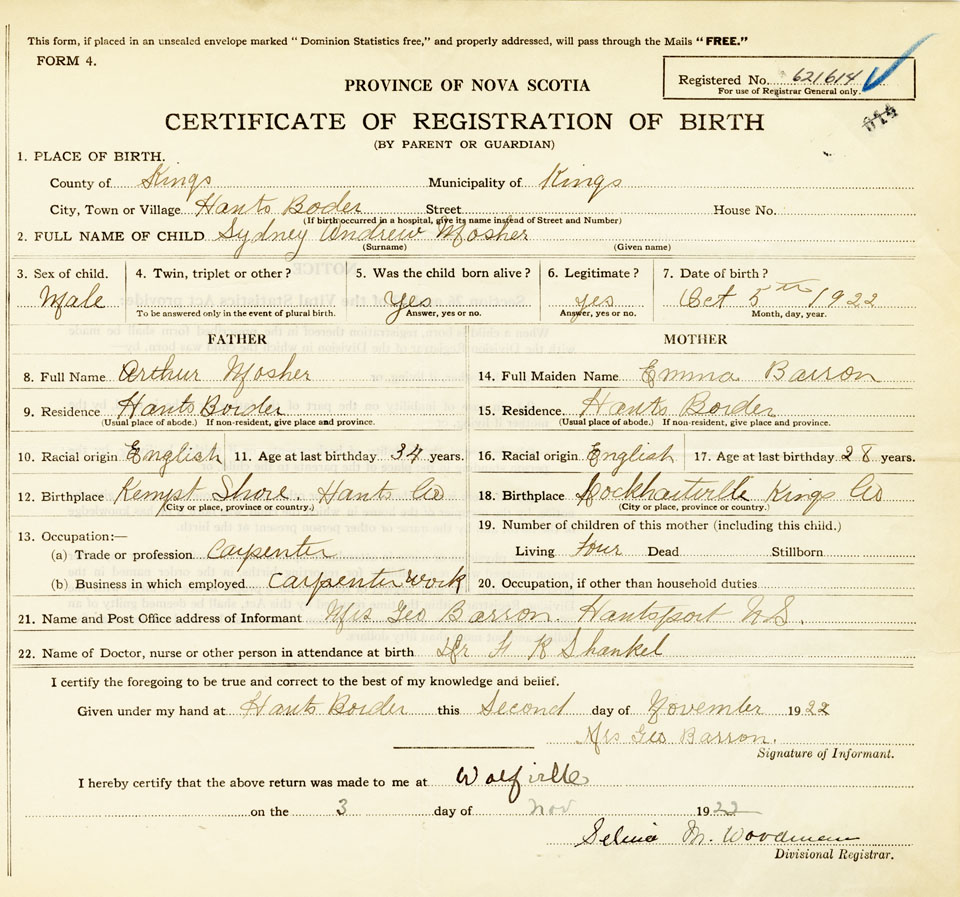 This form, if placed in an unsealed envelope marked “ Dominion Statistics free,” and properly addressed, will pass through the Mails “ FREE.”
FORM 4.
Registered No. 621614
For use of Registrar General only.
PROVINCE OF NOVA SCOTIA
614
CERTIFICATE OF REGISTRATION OF BIRTH
(BY PARENT OR GUARDIAN)
1. PLACE OF BIRTH.
County of Kings Municipality of Kings
City, Town or Village Hants Boder Street House No.
(If birth occurred in a hospital, give its name instead of Street and Number)
2. FULL NAME OF CHILD Sydney Andrew Mosher
(Surname) (Given name)
3. Sex of child. 4. Twin, triplet or other? 5. Was the child born alive? 6. Legitimate? 7. Date of birth?
Male Yes yes Oct 5th 1922
To be answered only in the event of plural birth. Answer, yes or no. Answer, yes or no. Month, day, year.
FATHER MOTHER
8. Full Name Arthur Mosher 14. Full Maiden Name Emma Barron
9. Residence Hants Border 15. Residence. Hants Border
(Usual place of abode.) If non-resident, give place and province. (Usual place of abode.) If non-resident, give place and province.
10. Racial origin English 11. Age at last birthday 34 years. 16. Racial origin English 17. Age at last birthday 28 years.
12. Birthplace Kempt Shore. Hants Co 18. Birthplace Lockhartville Kings Co
(City or place, province or country.) (City or place, province or country.)
13. Occupation:— 19. Number of children of this mother (including this child.)
(a) Trade or profession Carpenter Living four Dead Stillborn
(b) Business in which employed Carpenter work 20. Occupation, if other than household duties
21. Name and Post Office address of Informant Mrs Geo Barron. Hantsport N S.
22. Name of Doctor, nurse or other person in attendance at birth Dr K Shankel
I certify the foregoing to be true and correct to the best of my knowledge and belief.
Given under my hand at Hants Border this Second day of November 1922
Mrs Geo Barron.
Signature of Informant.
I hereby certify that the above return was made to me at Wolfville
on the 3 day of Nov 1922
M. Woodman
Divisional Registrar.